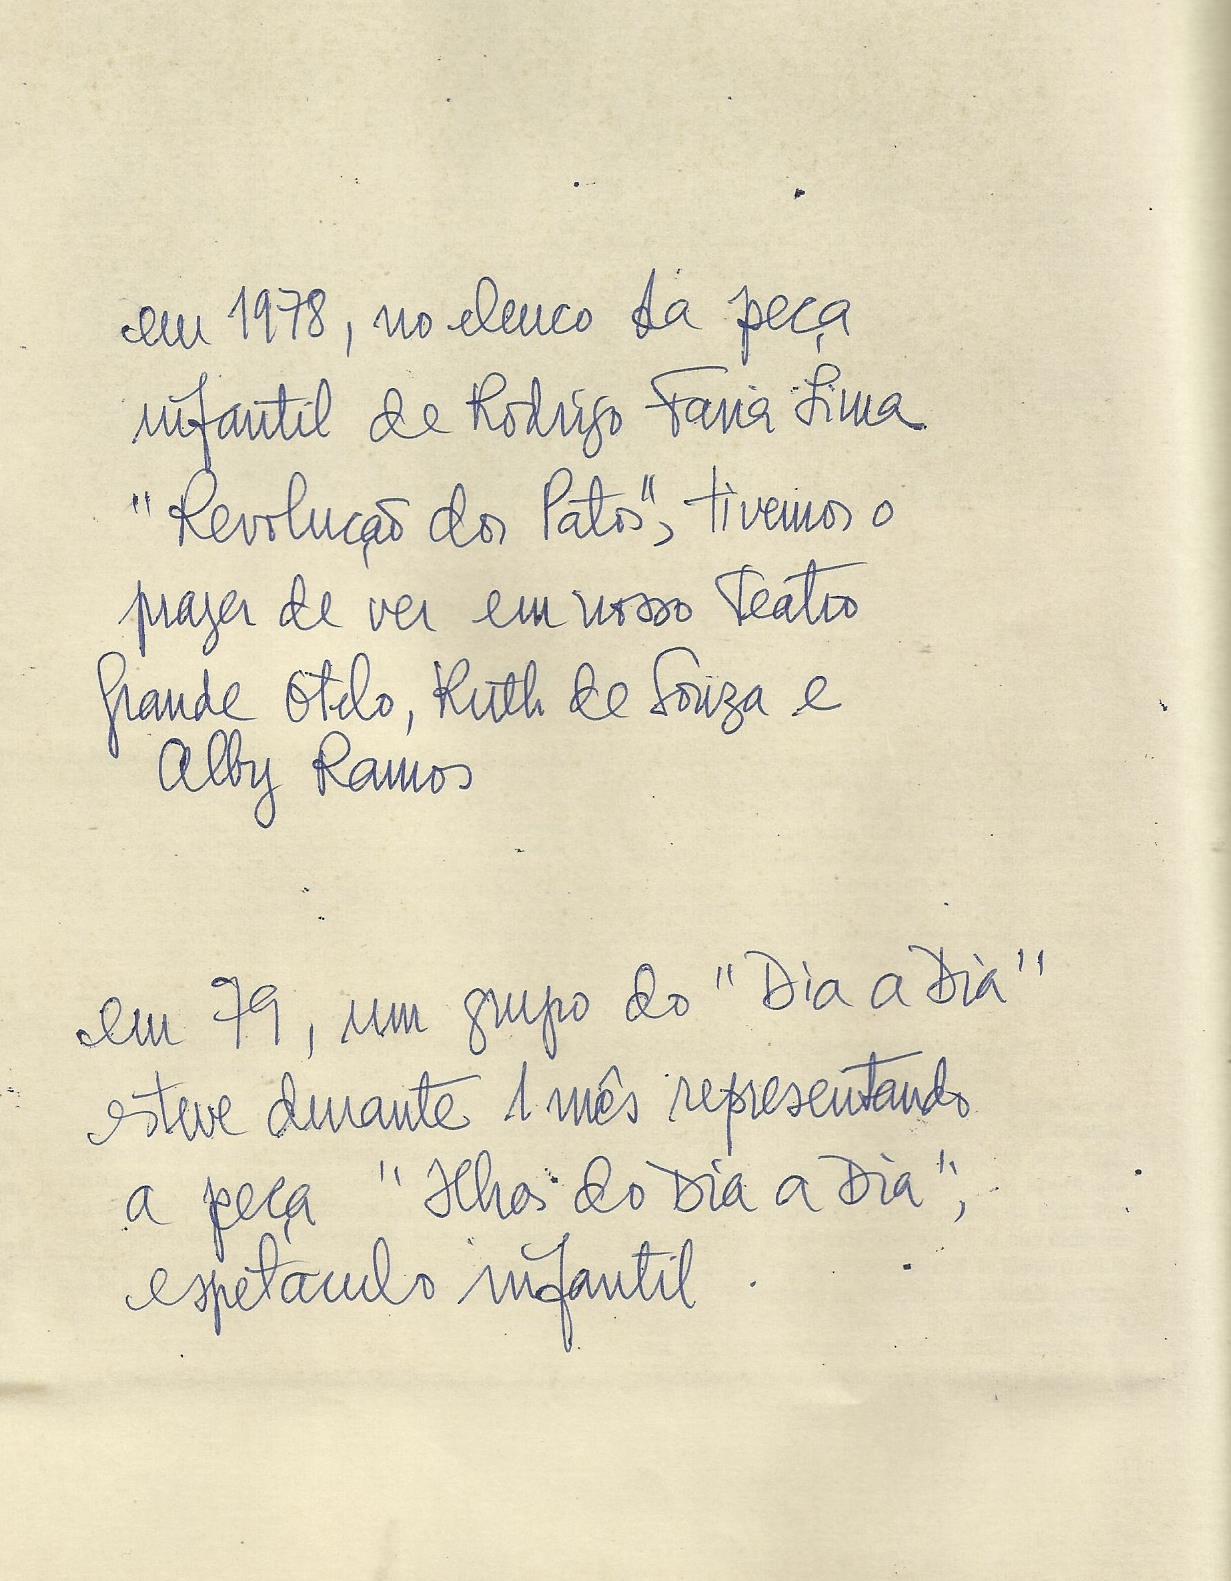 em 1978, no elenco da peça
infantil de Rodrigo Faria Lima
"Revolução dos Patos", tivemos o
prazer de ver em nosso Teatro
Grande Otelo, Ruth de Souza e
Alby Ramos
em 79, um grupo do "Dia a Dia"
esteve durante 1 mês representando
a peça "Ilhas do Dia a Dia",
espetáculo infantil.